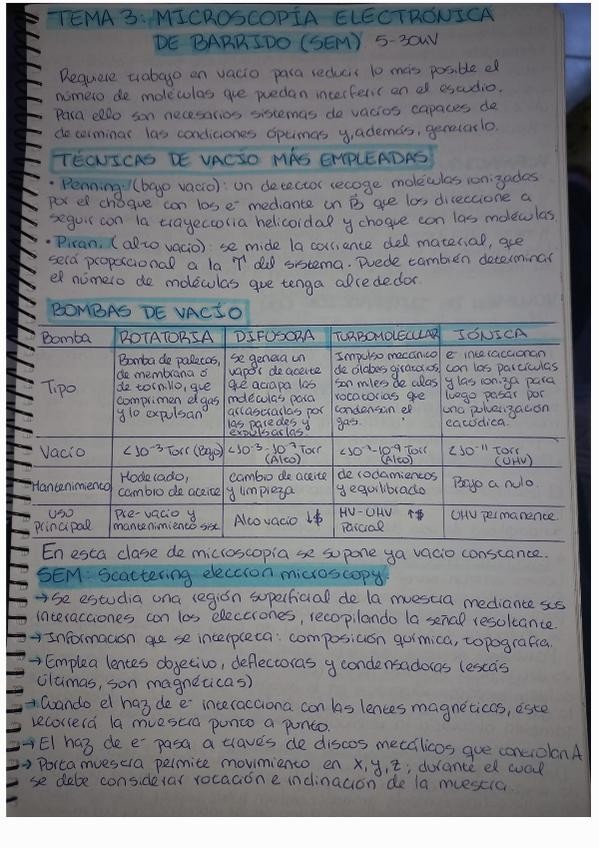 TEMA 3: MICROSCOPÍA ELECTRÓNICA
DE BARRIDO (SEM) 5-30kV
Requiere trabajo en vacío para reducir lo más posible el
número de moléculas que puedan interferir en el estudio.
Para ello son necesarios sistemas de vacíos capaces de
determinar las condiciones óptimas y, además, generarlo.
TÉCNICAS DE VACÍO MÁS EMPLEADAS
• Penning. (bajo vacío): un detector recoge moléculas ionizadas
por el choque con los e⁻ mediante un B que los direccione a
seguir con la trayectoria helicoidal y choque con las moléculas.
• Pirani. (alto vacío): se mide la corriente del material, que
será proporcional a la T del sistema. Puede también determinar
el número de moléculas que tenga alrededor.
BOMBAS DE VACÍO
Bomba ROTATORIA DIFUSORA TURBOMOLECULAR IÓNICA
Tipo
Bomba de paletas,
de membrana o
de tornillo, que
comprimen el gas
y lo expulsan
se genera un
vapor de aceite
que atrapa las
moléculas para
arrastrarlas por
las paredes y
expulsarlas.
Impulso mecánico
de álabes giratorios
son miles de alas
rotatorias que
condensan el
gas.
e⁻ interaccionan
con las partículas
y las ioniza para
luego pasar por
una pulverización
catódica.
Vacío <10⁻³ Torr (Bajo) <10⁻³-10⁻⁷ Torr (Alto) <10⁻⁷-10⁻⁹ Torr (Alto) <10⁻¹¹ Torr (UHV)
Mantenimiento
Moderado,
cambio de aceite
cambio de aceite
y limpieza
de rodamientos
y equilibrado
Bajo a nulo.
Uso
principal
Pre-vacío y
mantenimiento sist.
Alto vacío ↓$
HV-UHV ↑$
Parcial
UHV permanente.
En esta clase de microscopía se supone ya vacío constante.
SEM: Scattering electron microscopy.
→ Se estudia una región superficial de la muestra mediante sus
interacciones con los electrones, recopilando la señal resultante.
→ Información que se interpreta: composición química, topografía.
→ Emplea lentes objetivo, deflectoras y condensadoras (estás
últimas, son magnéticas)
→ Cuando el haz de e⁻ interacciona con las lentes magnéticas, éste
recorrerá la muestra punto a punto.
→ El haz de e⁻ pasa a través de discos metálicos que controlan A
→ Porta muestra permite movimiento en x, y, z; durante el cual
se debe considerar rotación e inclinación de la muestra.